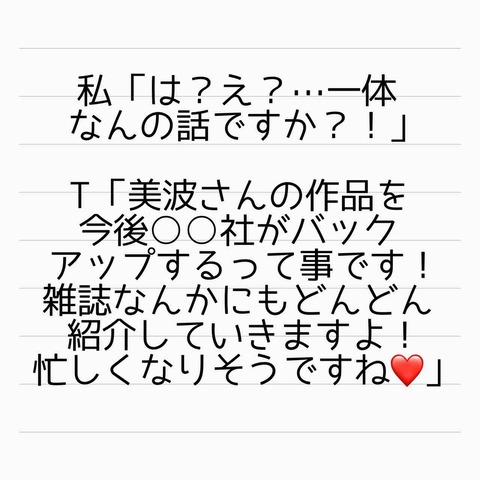 私「は？え？…一体
なんの話ですか？！」
T「美波さんの作品を
今後○○社がバック
アップするって事です！
雑誌なんかにもどんどん
紹介していきますよ！
忙しくなりそうですね❤️」